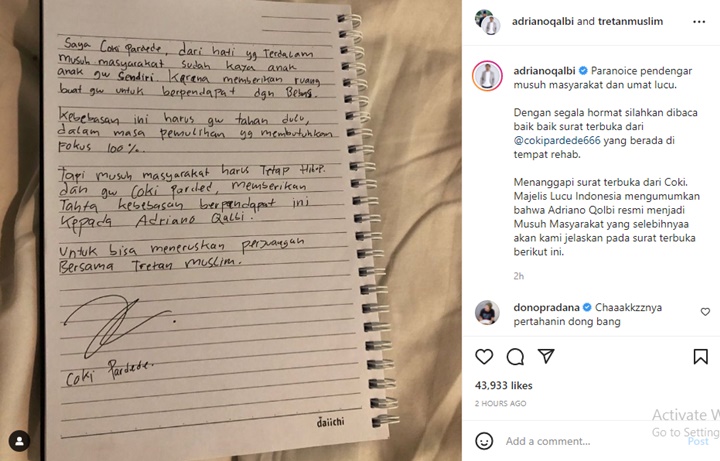 Saya Coki Pardede, dari hati yg Terdalam
musuh masyarakat sudah kaya anak
anak gw Sendiri. Karena memberikan ruang
buat gw untuk berpendapat dgn Bebas.
Kebebasan ini harus gw tahan dulu,
dalam masa pemulihan yg membutuhkan
Fokus 100%.
Tapi musuh masyarakat harus Tetap Hidup.
dan gw Coki Parded, memberikan
Tahta kebebasan berpendapat ini
Kepada Adriano Qalbi.
Untuk bisa meneruskan perjuangan
Bersama Tretan Muslim.
Coki Pardede.
daiichi
adrianoqalbi and tretanmuslim
adrianoqalbi Paranoice pendengar
musuh masyarakat dan umat lucu.
Dengan segala hormat silahkan dibaca
baik baik surat terbuka dari
@cokipardede666 yang berada di
tempat rehab.
Menanggapi surat terbuka dari Coki.
Majelis Lucu Indonesia mengumumkan
bahwa Adriano Qolbi resmi menjadi
Musuh Masyarakat yang selebihnyaa
akan kami jelaskan pada surat terbuka
berikut ini.
2h
donopradana Chaaakkzznya
pertahanin dong bang
43,933 likes
2 HOURS AGO
Add a comment...
Post
Activate W
Go to Setting